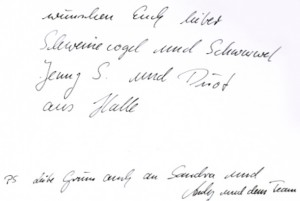 wünschen Euch lieber
Schweinevogel und Schwuwel
Jenny S. und Duot
aus Halle
PS liebe Grüße auch an Sandra und
Andy und dem Team